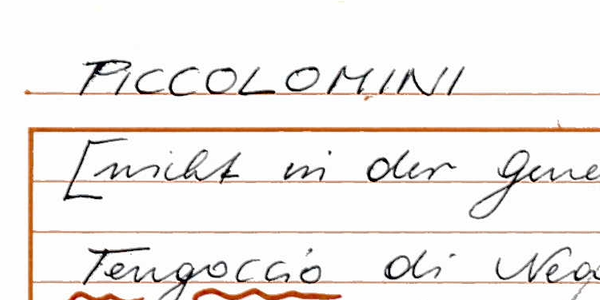 PICCOLOMINI
[nicht in der Gene
Tengoccio di Neg